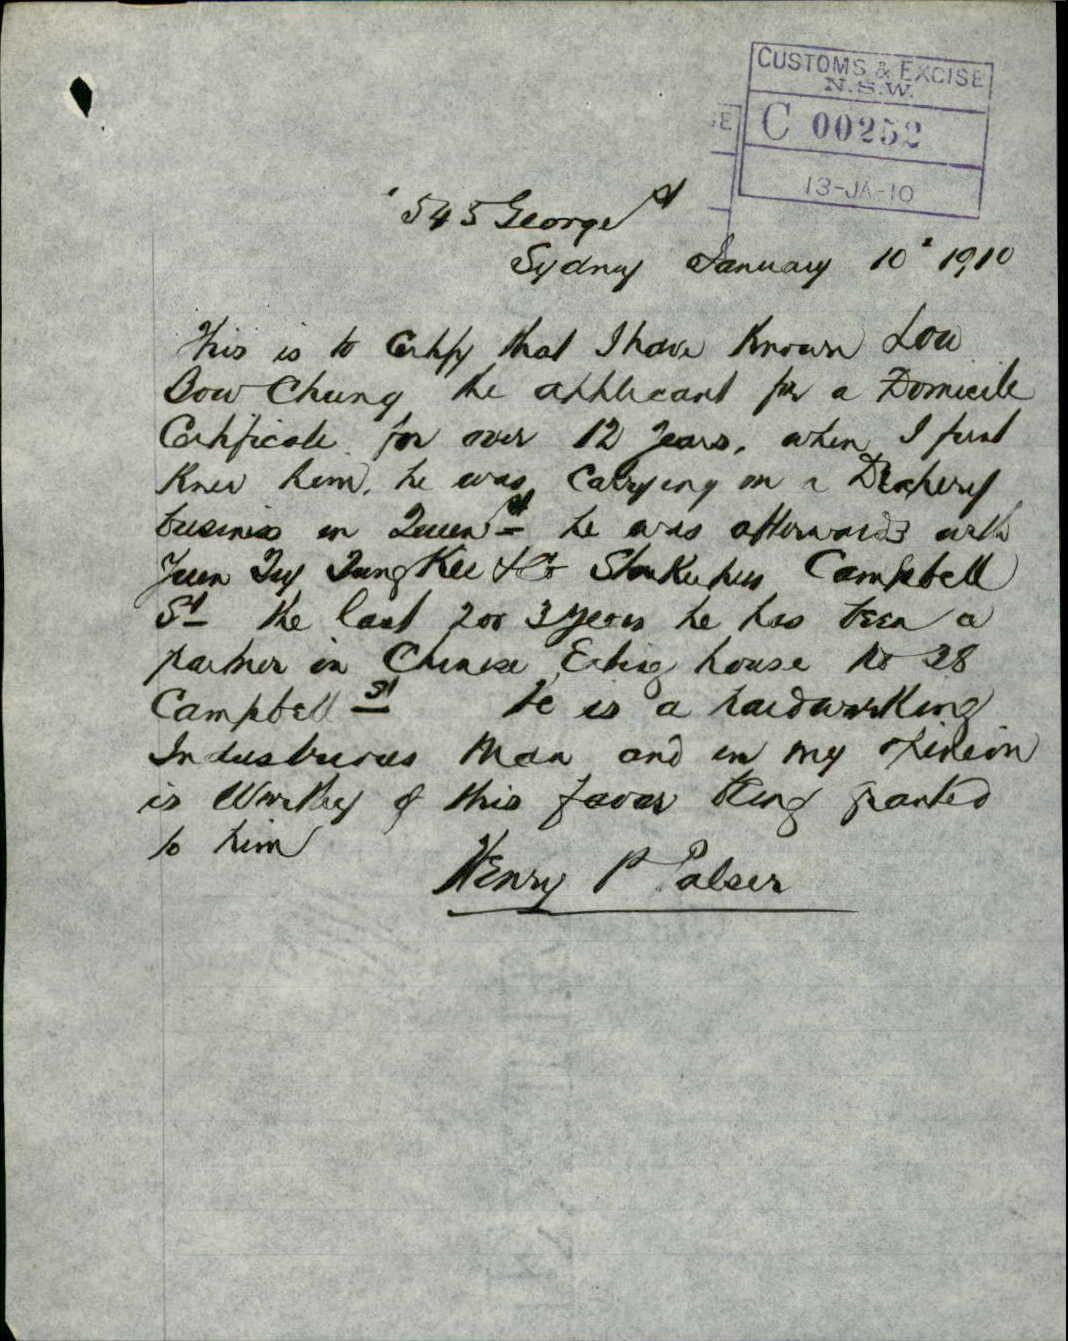 CUSTOMS & EXCISE
N.S.W.
C 00252
13-JA-10
GE
545 George St
Sydney January 10" 1910
This is to Certify that I have Known Lou
Bow Chung the applicant for a Domicile
Certificate for over 12 Years. when I first
Knew him. he was Carrying on a Drapery
business in Queen St he was afterwards with
Yuen Tiy Tung Kee & Co Storekeepers Campbell
St the last 2 or 3 years he has been a
partner in Chinese Eating house No 28
Campbell St he is a hardworking
Industrious Man and in my opinion
is Worthy of this favor being granted
to him
Henry P Palser